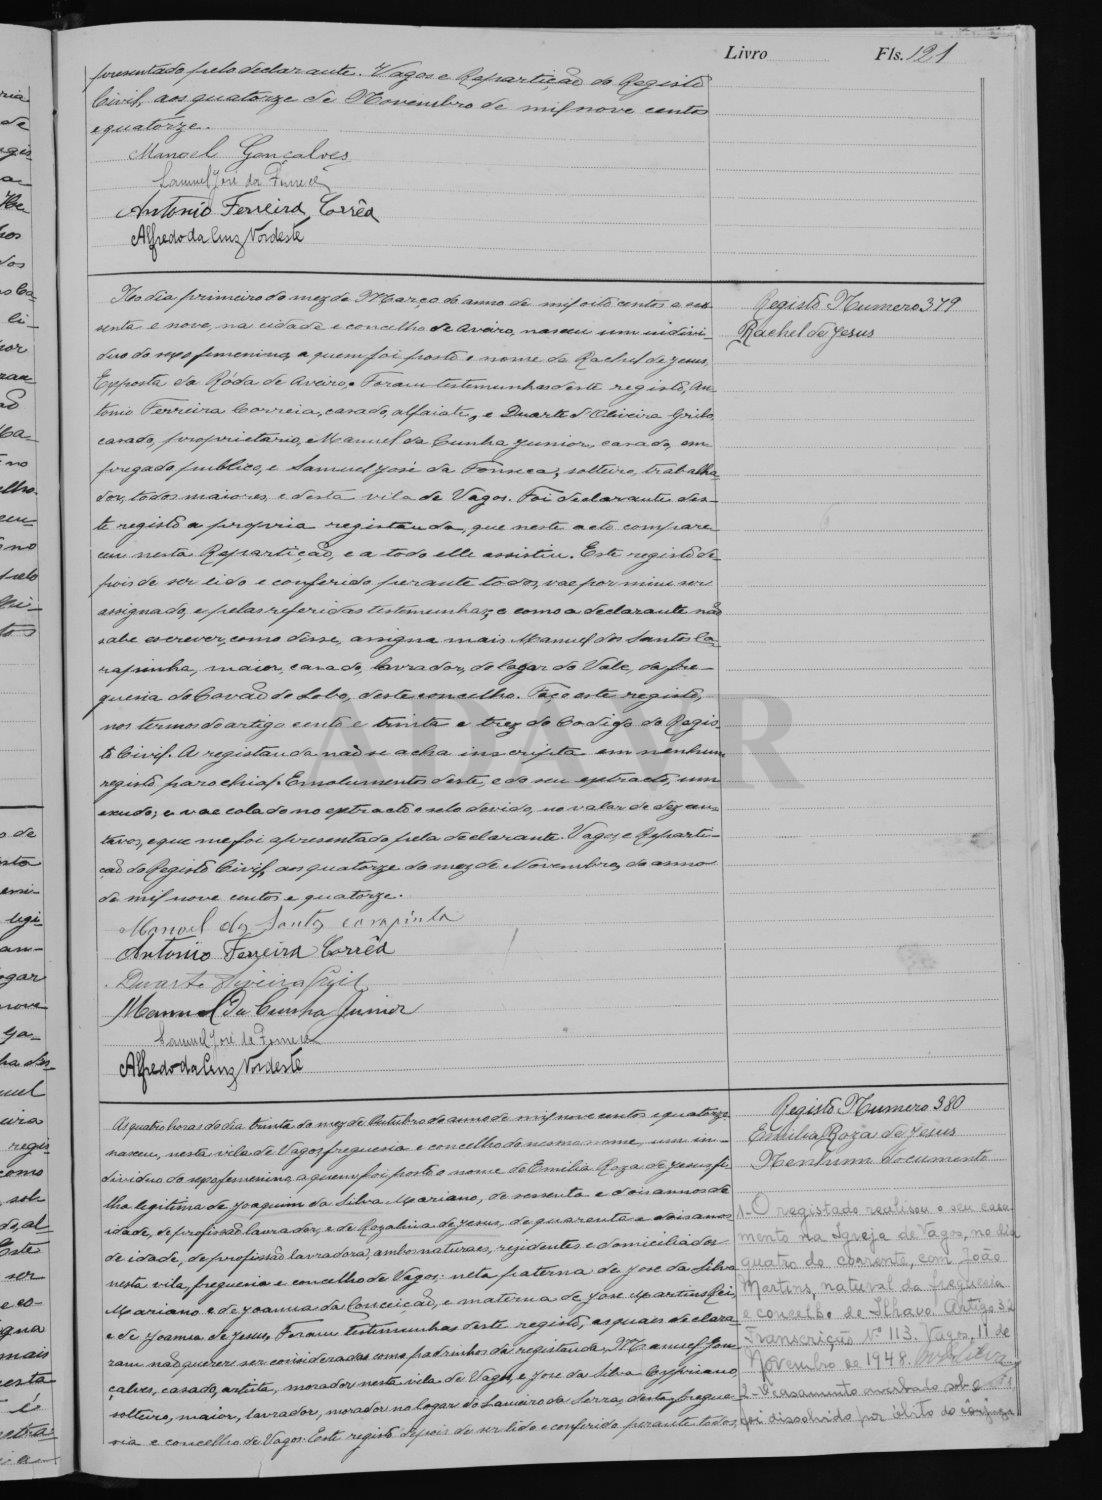 Livro Fls. 121
presentado pelo declarante. Vagos e Repartição do Registo
Civil, aos quatorze de Novembro de mil nove centos
e quatorze.
Manoel Gonçalves
Samuel José da Fonseca
Antonio Ferreira Corrêa
Alfredo da Cruz Nordeste
Registo Numero 379
Rachel de Jesus
No dia primeiro do mez de Março do anno de mil oito centos e ses-
senta e nove, na cidade e concelho de Aveiro, nasceu um indivi-
duo do sexo femenino, a quem foi posto o nome de Rachel de Jesus,
Exposta da Róda de Aveiro. Foram testemunhas deste registo, An-
tonio Ferreira Correia, casado, alfaiate, e Duarte d'Oliveira Grilo,
casado, proprietario, e Manuel da Cunha Junior, casado, em-
pregado publico, e Samuel José da Fonseca, solteiro, trabalha-
dor, todos maiores, e desta vila de Vagos. Foi declarante des-
te registo a propria registanda, que neste acto compare-
ceu nesta Repartição, e a todo elle assistiu. Este registo de-
pois de ser lido e conferido perante todos, vae por mim ser
assignado, e pelas referidas testemunhas; e como a declarante não
sabe escrever, como disse, assigna mais Manuel dos Santos Ca-
rapinha, maior, casado, lavrador, do logar do Vale, da fre-
guesia de Covão do Lobo, deste concelho. Faço este registo,
nos termos do artigo cento e trinta e trez do Codigo do Regis-
to Civil. A registanda não se acha inscripta em nenhum
registo parochial. Emolumentos deste, e do seu extracto, um
escudo; e vae colado no extracto o selo devido, no valor de dez cen-
tavos, e que me foi apresentado pela declarante. Vagos, e Reparti-
ção do Registo Civil, aos quatorze do mez de Novembro, do anno
de mil nove centos e quatorze.
Manoel dos Santos Carapinha
Antonio Ferreira Corrêa
Duarte Oliveira Grilo
Manuel da Cunha Junior
Samuel José da Fonseca
Alfredo da Cruz Nordeste
ADAVR
Registo Numero 380
Emilia Roza de Jesus
Nenhum documento
As quatro horas do dia trinta do mez de Outubro do anno de mil nove centos e quatorze
nasceu, nesta vila de Vagos, freguesia e concelho do mesmo nome, um in-
dividuo do sexo femenino, a quem foi posto o nome de Emilia Roza de Jesus, fi-
lha legitima de Joaquim da Silva Mariano, de sessenta e dois annos de
idade, de profissão lavrador, e de Rozalina de Jesus, de quarenta e dois annos
de idade, de profissão lavradora, ambos naturaes, residentes e domiciliados
nesta vila, freguesia e concelho de Vagos; neta paterna de José da Silva
Mariano e de Joanna da Conceição, e materna de José Martins Rei,
e de Joanna de Jesus, Foram testemunhas deste registo, as quaes declara-
ram não querer ser consideradas como padrinhos da registanda, Manuel Gon-
çalves, casado, artista, morador nesta vila de Vagos, e José da Silva Cypriano,
solteiro, maior, lavrador, morador no logar do Lameiro da Serra, desta fregue-
sia e concelho de Vagos. Este registo depois de ser lido e conferido perante todos,
1- O registado realisou o seu casa-
mento na Igreja de Vagos, no dia
quatro do corrente, com João
Martins, natural da freguesia
e concelho de Ilhavo. Artigo 32
Transcrição Nº 113. Vagos, 11 de
Novembro de 1948.
2- O casamento averbado sob o nº 1
foi dissolvido por óbito do cônjuge